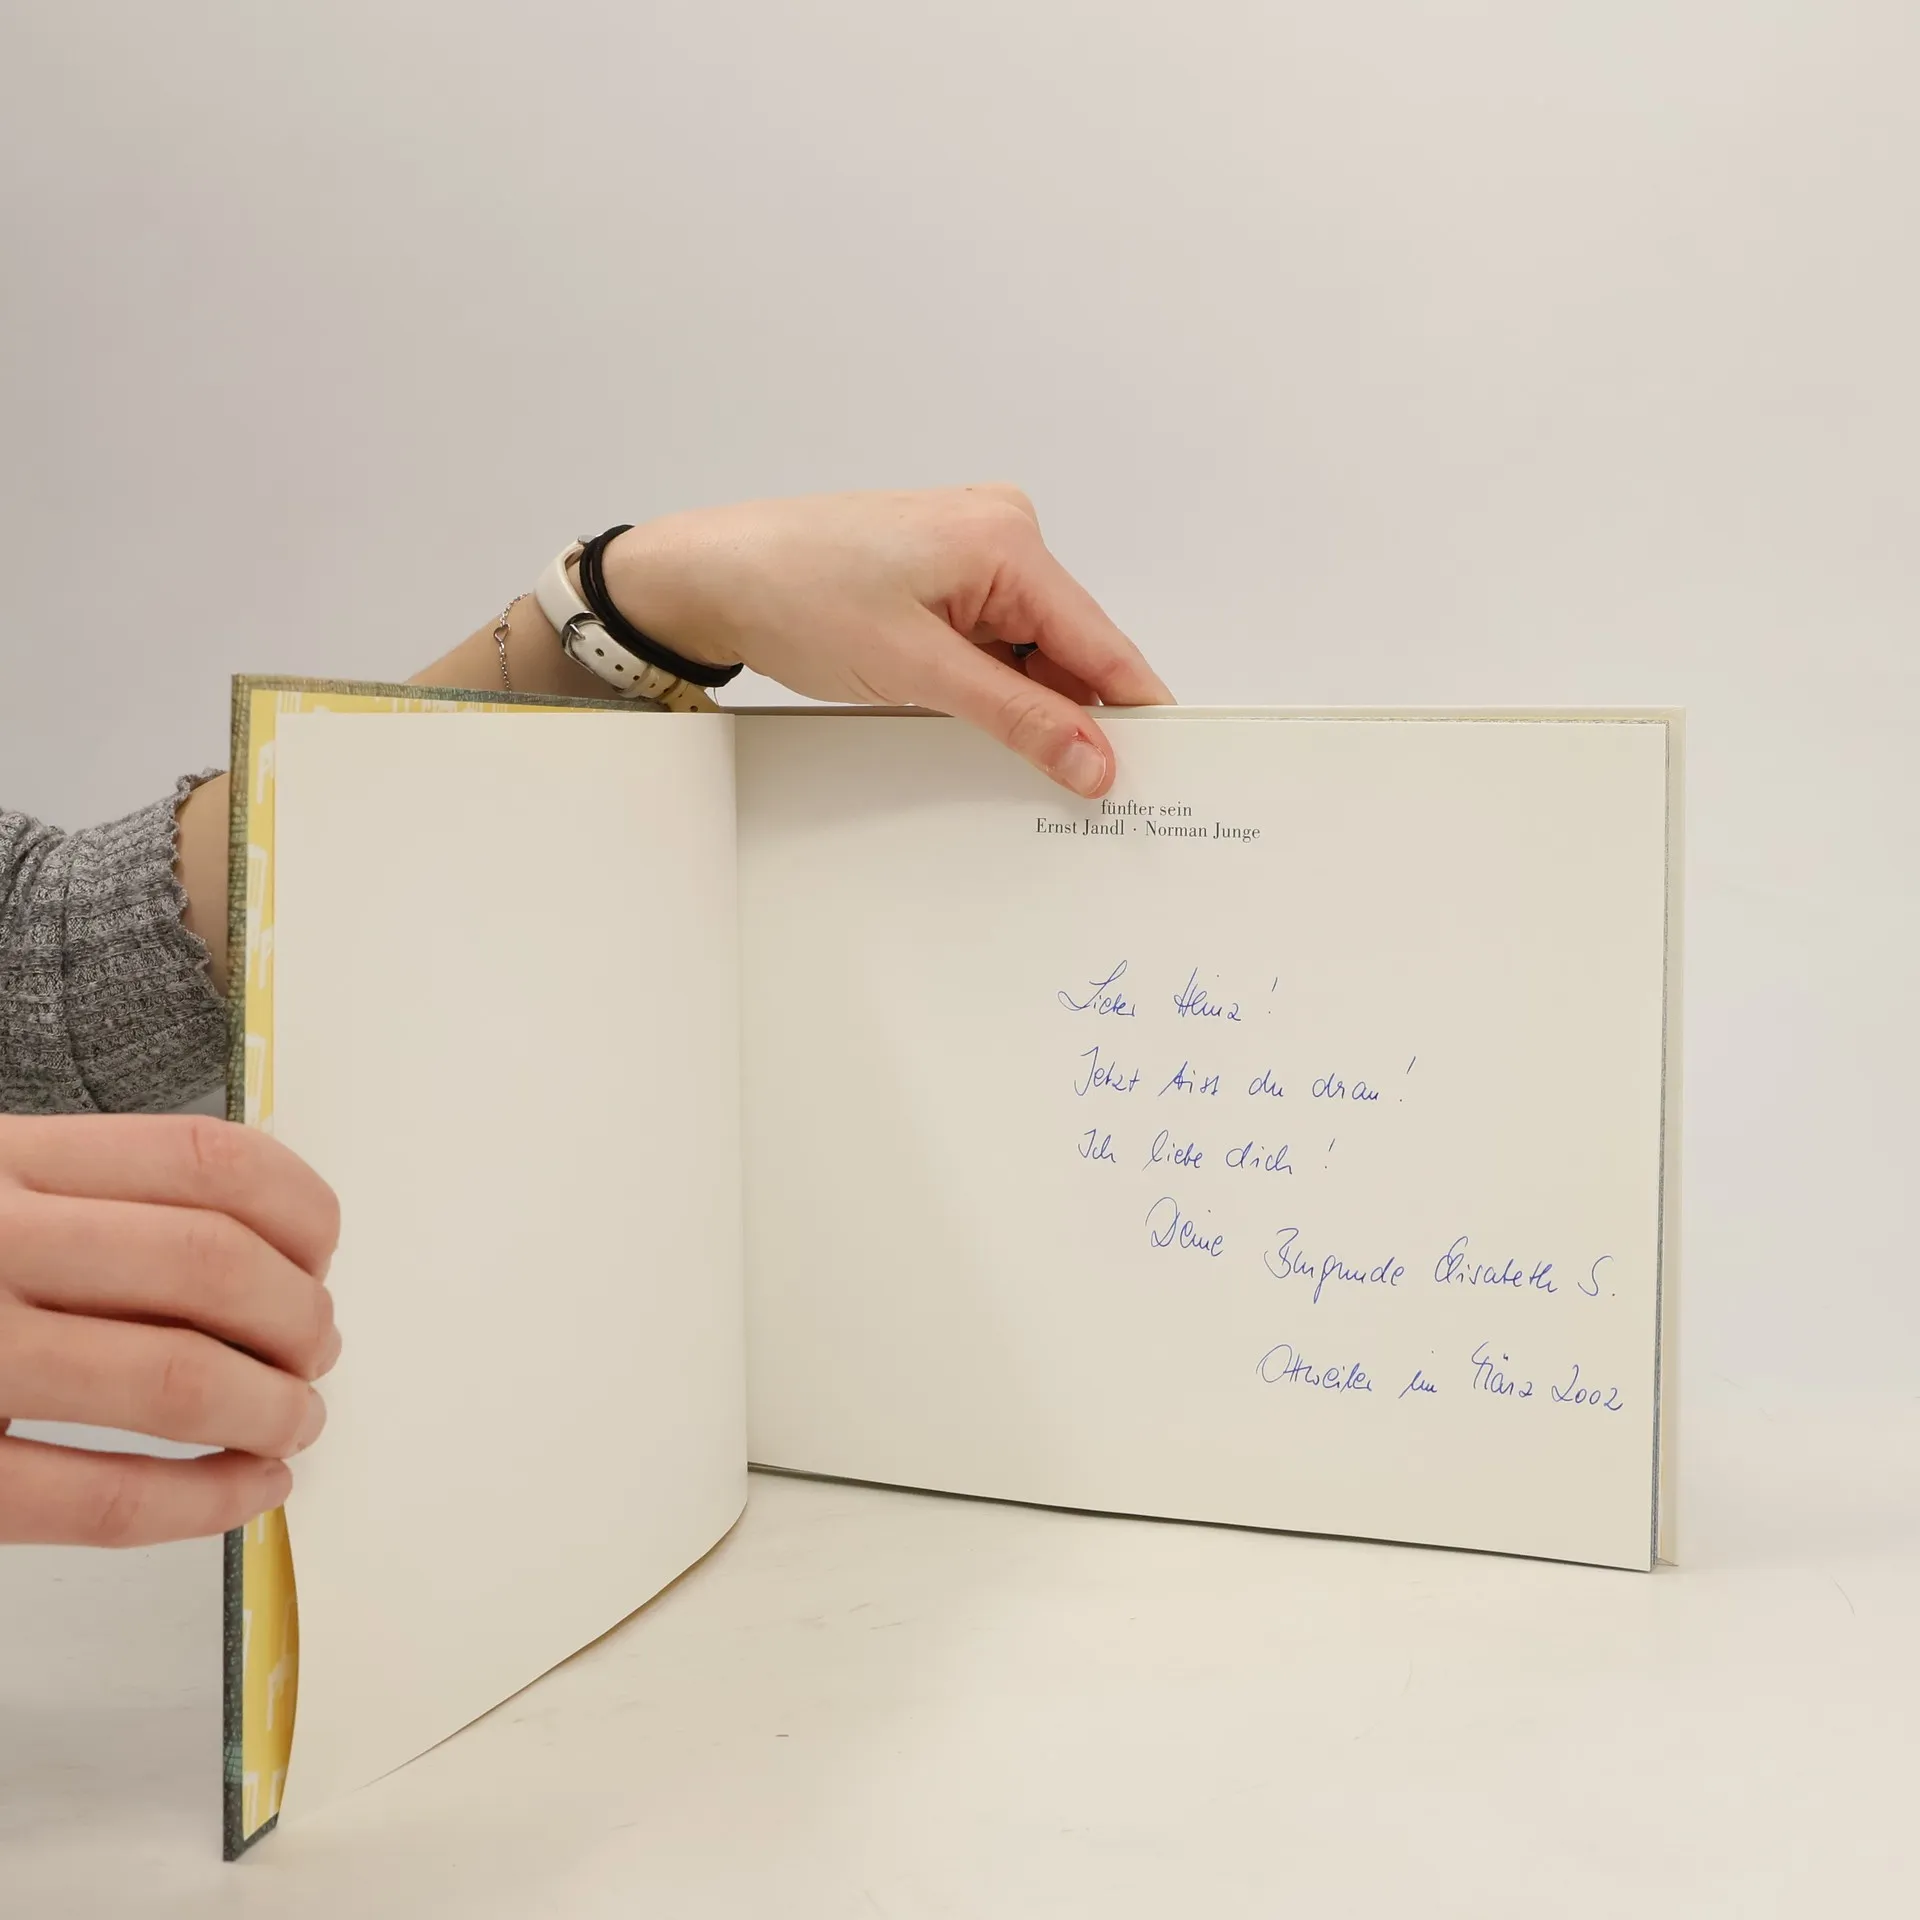 fünfter sein
Ernst Jandl · Norman Junge
Lieber Heinz!
Jetzt bist du dran!
Ich liebe dich!
Deine Burgunde Elisabeth S.
Ottweiler im März 2002